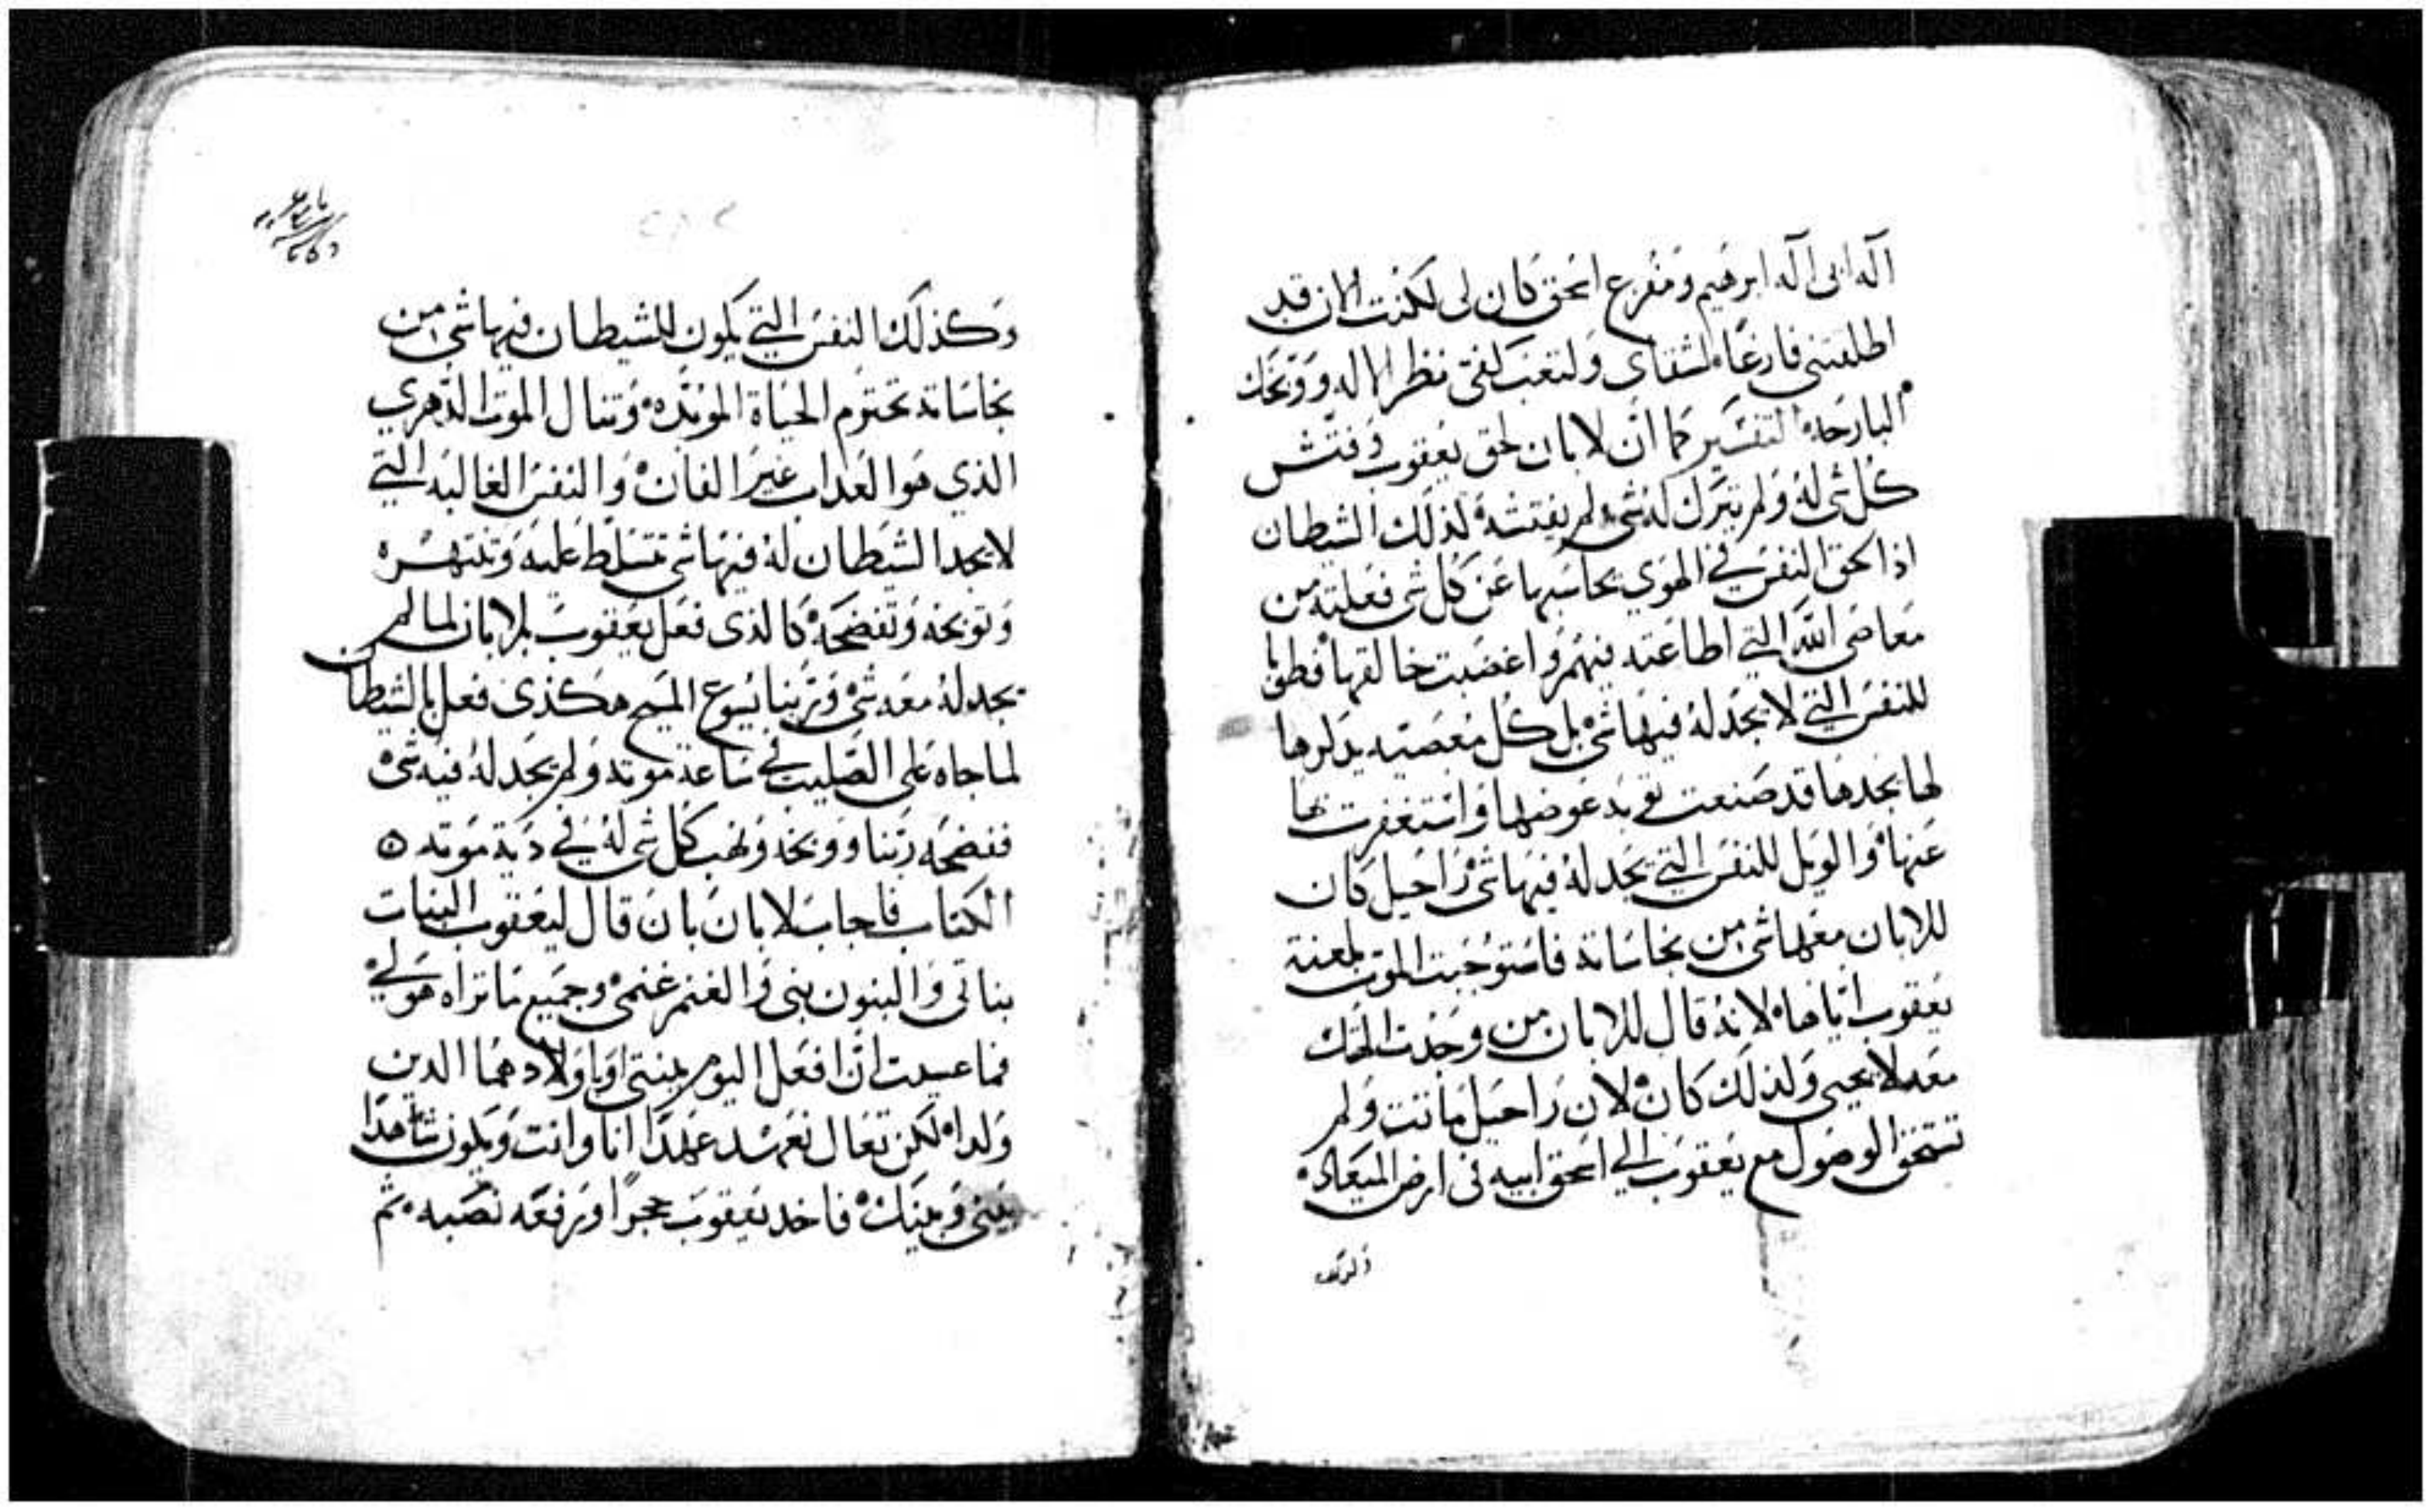 اله ابى اله ابرهيم ومفزع اسحق كان لى لكنت الان قد
اطلقتنى فارغا لشقاى ولتعب كفى نظر الاله ووبخك
البارحه التفسير كما ان لابان لحق يعقوب وفتش
كل شى له ولم يترك له شى لم يفتشه لذلك الشيطان
اذا لحق النفس في الهوي يحاسبها عن كل شى فعلته من
معاصى الله التي اطاعته فيهم واغضبت خالقها فطوبا
للنفس التي لا يجد له فيها شى بل كل معصيه يدكرها
لها يجدها قد صنعت توبه عوضها واستغفرت
عنها والويل للنفس التي يجد له فيها شى راحيل كان
للابان معها شى من نجاساته فاستوجبت الموت بلعنة
يعقوب اياها لانه قال للابان من وجدت الهك
معه لا يحيى ولذلك كان لان راحيل ماتت ولم
تستحق الوصول مع يعقوب الي اسحق ابيه فى ارض الميعاد
وكذلك
وكذلك النفس التي يكون للشيطان فيها شى من
نجاساته تحترم الحياة الموبده وتنال الموت الدهري
الذي هوا العداب غير الفان والنفس الغالبه التي
لا يجد الشيطان له فيها شى تتسلط عليه وتنتهره
وتوبخه وتفضحه كالذى فعل يعقوب بلابان لما لم
يجد له معه شى وربنا يسوع المسيح هكذى فعل بالشيطان
لما جاه على الصليب في ساعة موته ولم يجد له فيه شى
ففضحه ربنا ووبخه ونهب كل شى له في دبة موته
الكتاب فاجاب لابان بان قال ليعقوب البنات
بناتى والبنون بنى والغنم غنمى وجميع ما تراه هو لي
فما عسيت ان افعل اليوم ببنتى اوباولادهما الدين
ولدا لكن تعال نعهد عهدا انا وانت ويكون شاهدا
بينى وبينك فاخد يعقوب حجرا ورفعه نصبه ثم